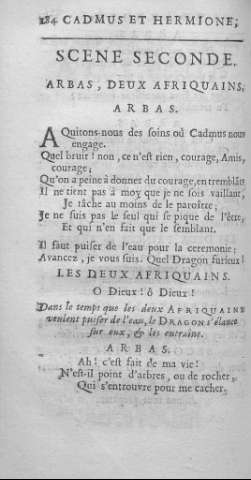 184 CADMUS ET HERMIONE,
SCENE SECONDE.
ARBAS, DEUX AFRIQUAINS.
ARBAS.
AQuitons-nous des soins où Cadmus nous
engage.
Quel bruit! non, ce n'est rien, courage, Amis,
courage;
Qu'on a peine à donner du courage, en tremblāt!
Il ne tient pas à moy que je ne sois vaillant,
Je tâche au moins de le paroître;
Je ne suis pas le seul qui se pique de l'être,
Et qui n'en fait que le semblant.
Il faut puiser de l'eau pour la ceremonie;
Avancez, je vous suis. Quel Dragon furieux!
LES DEUX AFRIQUAINS.
O Dieux! ô Dieux!
Dans le temps que les deux AFRIQUAINS
veulent puiser de l'eau, le DRAGON s'élance
sur eux, & les entraîne.
ARBAS.
Ah! c'est fait de ma vie!
N'est-il point d'arbres, ou de rocher,
Qui s'entrouvre pour me cacher,